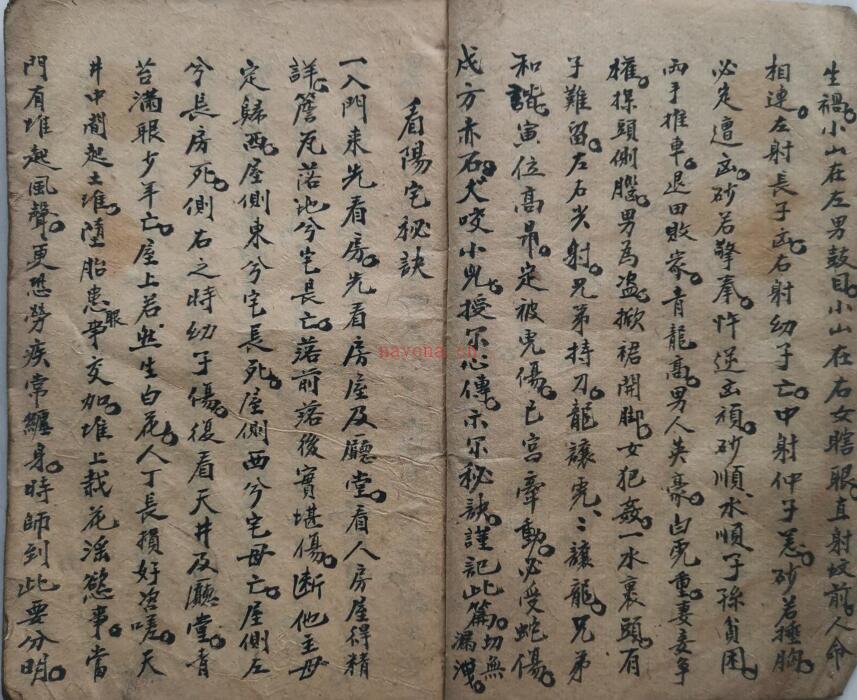 生禍小山在左男鼓目小山在右女瞎眼直射墳前人命
相連左射長子凶右射幼子亡中射仲子惡砂若捶胸
必定遭凶砂若擎拳忤逆凶頑砂順水順子孫貧困
兩手推車退田敗家青龍高男人英豪白虎重妻妾爭
權探頭側腦男為盜掀裙開脚女犯姦一水裹頭有
子難留左右尖射兄弟持刀龍讓虎〻讓龍兄弟
和諧寅位高昂定被虎傷巳宮牽動必受蛇傷
戌方赤石犬咬小兒授尔心傳示尔秘訣謹記此篇切無漏洩
看陽宅秘訣
一入門来先看房先看房屋及廳堂看人房屋得精
詳簷瓦落地兮宅長亡落前落後實堪傷断他主母
定歸西屋側東兮宅長死屋側西兮宅母亡屋側左
兮長房死側右之時幼子傷復看天井及廳堂青
苔滿眼少年亡屋上若然生白花人丁長損好咨嗟天
井中間起土堆墮胎患眼事交加堆上栽花淫慾事當
門有堆起風聲更恐勞疾常纏身時師到此要分明
nayona.cn